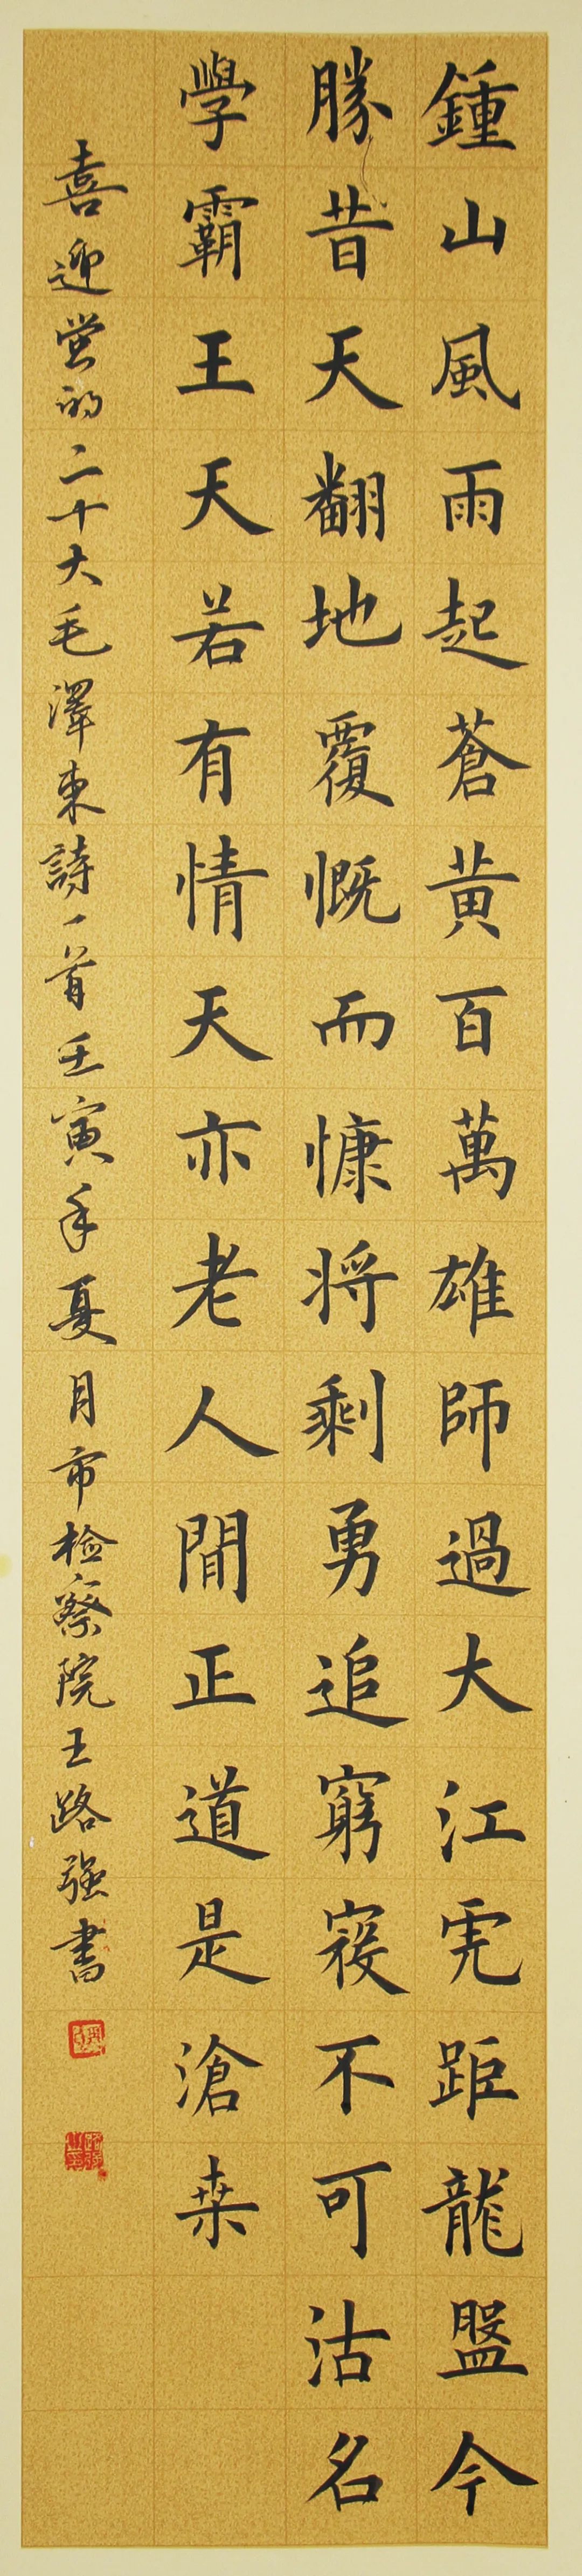 鍾山風雨起蒼黃百萬雄師過大江虎距龍盤今
勝昔天翻地覆慨而慷將剩勇追窮寇不可沽名
學霸王天若有情天亦老人間正道是滄桑
喜迎党的二十大毛澤東詩一首壬寅年夏月市檢察院王路强書